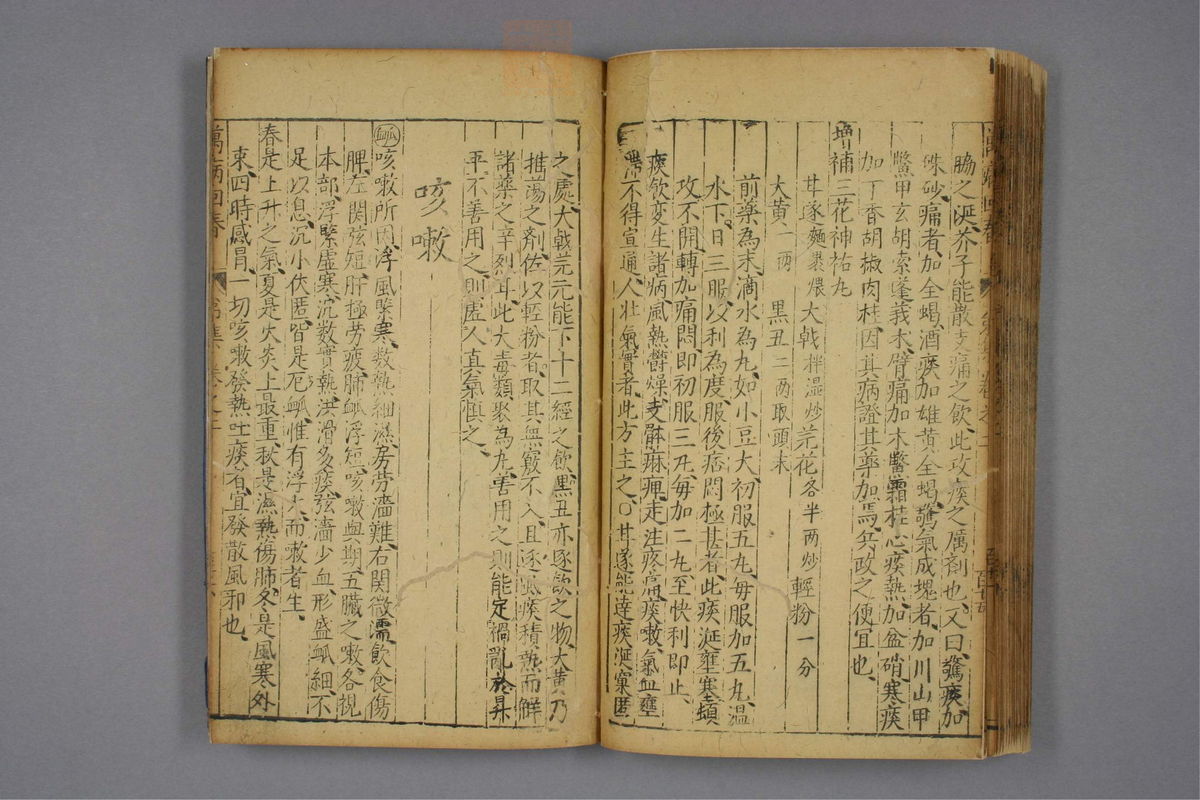 脇之涎芥子能散支痛之飲此攻痰之厲劑也又曰驚痰加
硃砂痛者加全蝎酒痰加雄黃全蝎驚氣成塊者加川山甲
鱉甲玄胡索蓬莪朮臂痛加木鱉霜桂心痰熱加盆硝寒痰
加丁香胡椒肉桂因其病證其藥加焉兵政之便宜也
增補三花神祐丸
甘遂麵裹煨 大戟拌湿炒 芫花各半兩炒 輕粉一分
大黃一兩 黑丑二兩取頭末
前藥為末滴水為丸如小豆大初服五丸每服加五丸温
水下日三服以利為度服後痞悶極甚者此痰涎壅塞頓
攻不開轉加痛悶即初服三丸每加二丸至快利即止
痰飲变生諸病風熱欝燥支體麻痺走注疼痛痰嗽氣血壅
滯不得宣通人壮氣實者此方主之○甘遂能達痰涎窠匿
之處大戟芫元能下十二經之飲黑丑亦逐飲之物大黃乃
推蕩之劑佐以輕粉者取其無竅不入且逐風痰積熱而鮮
諸藥之辛烈耳此大毒類聚為丸善用之則能定禍亂於昇
平不善用之則虛人真氣慎之
咳嗽
脈 咳嗽所因浮風緊寒数熱細濕房劳濇難右関微濡飲食傷
脾左関弦短肝極劳疲肺脈浮短咳嗽與期五臟之嗽各視
本部浮緊虛寒沉数實熱洪滑多痰弦濇少血形盛脈細不
足以息沉小伏匿皆是厄脈惟有浮大而嗽者生
春是上升之氣夏是火炎上最重秋是濕熱傷肺冬是風寒外
束四時感冒一切咳嗽發熱吐痰者宜發散風邪也
萬病回春